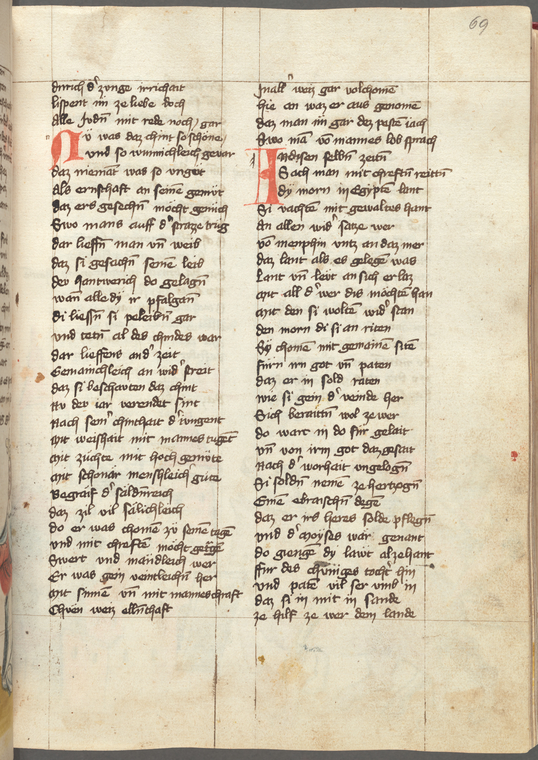 69
durich d' zunge irrichait
lispent im ze liebe doch
Alle Judn̄ mit rede noch gar
Nv̈ was daz chint so schöne
vnd so wunnichleich gevar
daz niemāt was so
Als ernsthaft an seinē gemv̈t
daz ers gesechn̄ möcht
Swo mans auff d' strazz trūg
dar lieffn̄ man vn̄ weib
daz si gesachn̄ seinē leib
der hantwerich do
wan̄ alle dy ir pflagan̄
di liessn̄ si beleibn̄ gar
vnd tetn̄ al des chindes war
dar lieffens and' zeit
Gemainchleich an wid' streit
daz si beschavten daz chint
Nv der iar verendet sint
Nach sein' chinthait d' iungent
mit weishait mit mannes tugēt
mit züchte mit hoch gemv̈te
mit schonär menschleich' güte
Begraif d'
daz zil vil sälichleich
do er was chomē zü seinē tagē
vnd mit chreftē möcht
Swert vnd mändleich wer
Er was gein veintleichn̄ her
mit sinnen vn̄ mit manneschraft
Chven wers elln̄thaft
Inall' weiz gar volchomē
hie an waz er aus genomē
daz man im gar dez pestē iach
Swo mā vō mannes lob sprach
An disen selbn̄ zeitn̄
Sach man mit chreftn̄ reittn̄
dy morn in Egipte lant
Si vachtē mit gewaltes hant
An allen wid' satze wer
vō menphin vntz an daz mer
daz lant als es gelegē was
Lant vn̄ levt an sich er laz
mit all d' wer dis möchtē han
mit den si woltē wid' stan
den morn di si an riten
Sy chomē mit gemainē sitē
für irn got vn̄ paten
daz er in sold raten
wie si gein d' veinde her
Sich beraittn̄ wol ze wer
do wart in do für gelait
vn̄ von irm got daz gesait
Nach d' worhait vngelogn̄
Si soldn̄ nemē ze hertzogn̄
Einē ebraischn̄ degē
daz er irs heres solde pflegn̄
vnd d' moyses wär genant
do gienge dy lawt al zehant
für des chüniges tocht' hin
vnd patē vil ser vmb in
daz si in mit in sande
ze hilf ze wer dem lande